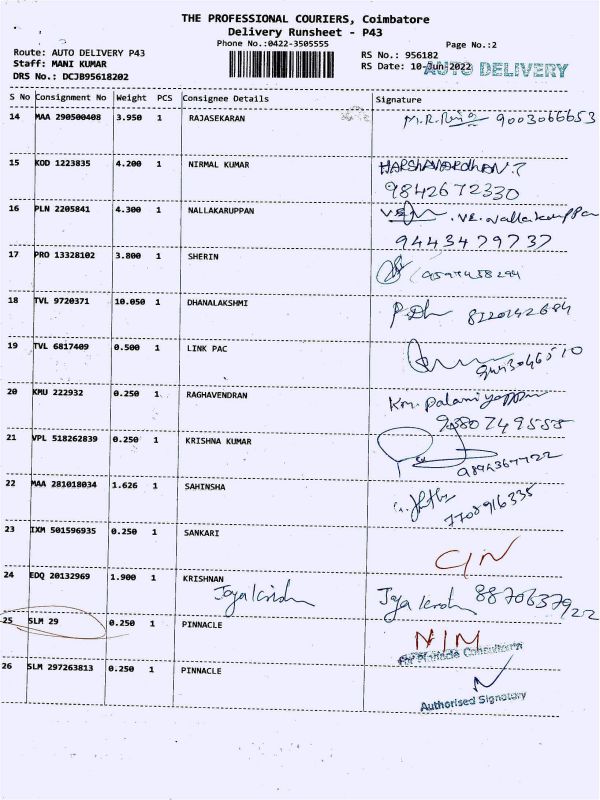 THE PROFESSIONAL COURIERS, Coimbatore
Delivery Runsheet - P43
Phone No.:0422-3505555
Page No.:2
Route: AUTO DELIVERY P43
RS No.: 956182
Staff: MANI KUMAR
RS Date: 10-Jun-2022 AUTO DELIVERY
DRS No.: DCJB95618202
S No Consignment No Weight PCS Consignee Details Signature
14 MAA 290500408 3.950 1 RAJASEKARAN 9003066653
15 KOD 1223835 4.200 1 NIRMAL KUMAR HARSHAVARDHAN.T
9842672330
16 PLN 2205841 4.300 1 NALLAKARUPPAN VE.Nallakaruppan
9443479737
17 PRO 13328102 3.800 1 SHERIN
18 TVL 9720371 10.050 1 DHANALAKSHMI
19 TVL 6817409 0.500 1 LINK PAC
20 KMU 222932 0.250 1 RAGHAVENDRAN Km. Palaniyappan
9380749555
21 VPL 518262839 0.250 1 KRISHNA KUMAR
22 MAA 281018034 1.626 1 SAHINSHA
7708916335
23 IXM 501596935 0.250 1 SANKARI
24 EDQ 20132969 1.900 1 KRISHNAN
25 SLM 29 0.250 1 PINNACLE
For Pinnacle Consultants
26 SLM 297263813 0.250 1 PINNACLE
Authorised Signatory